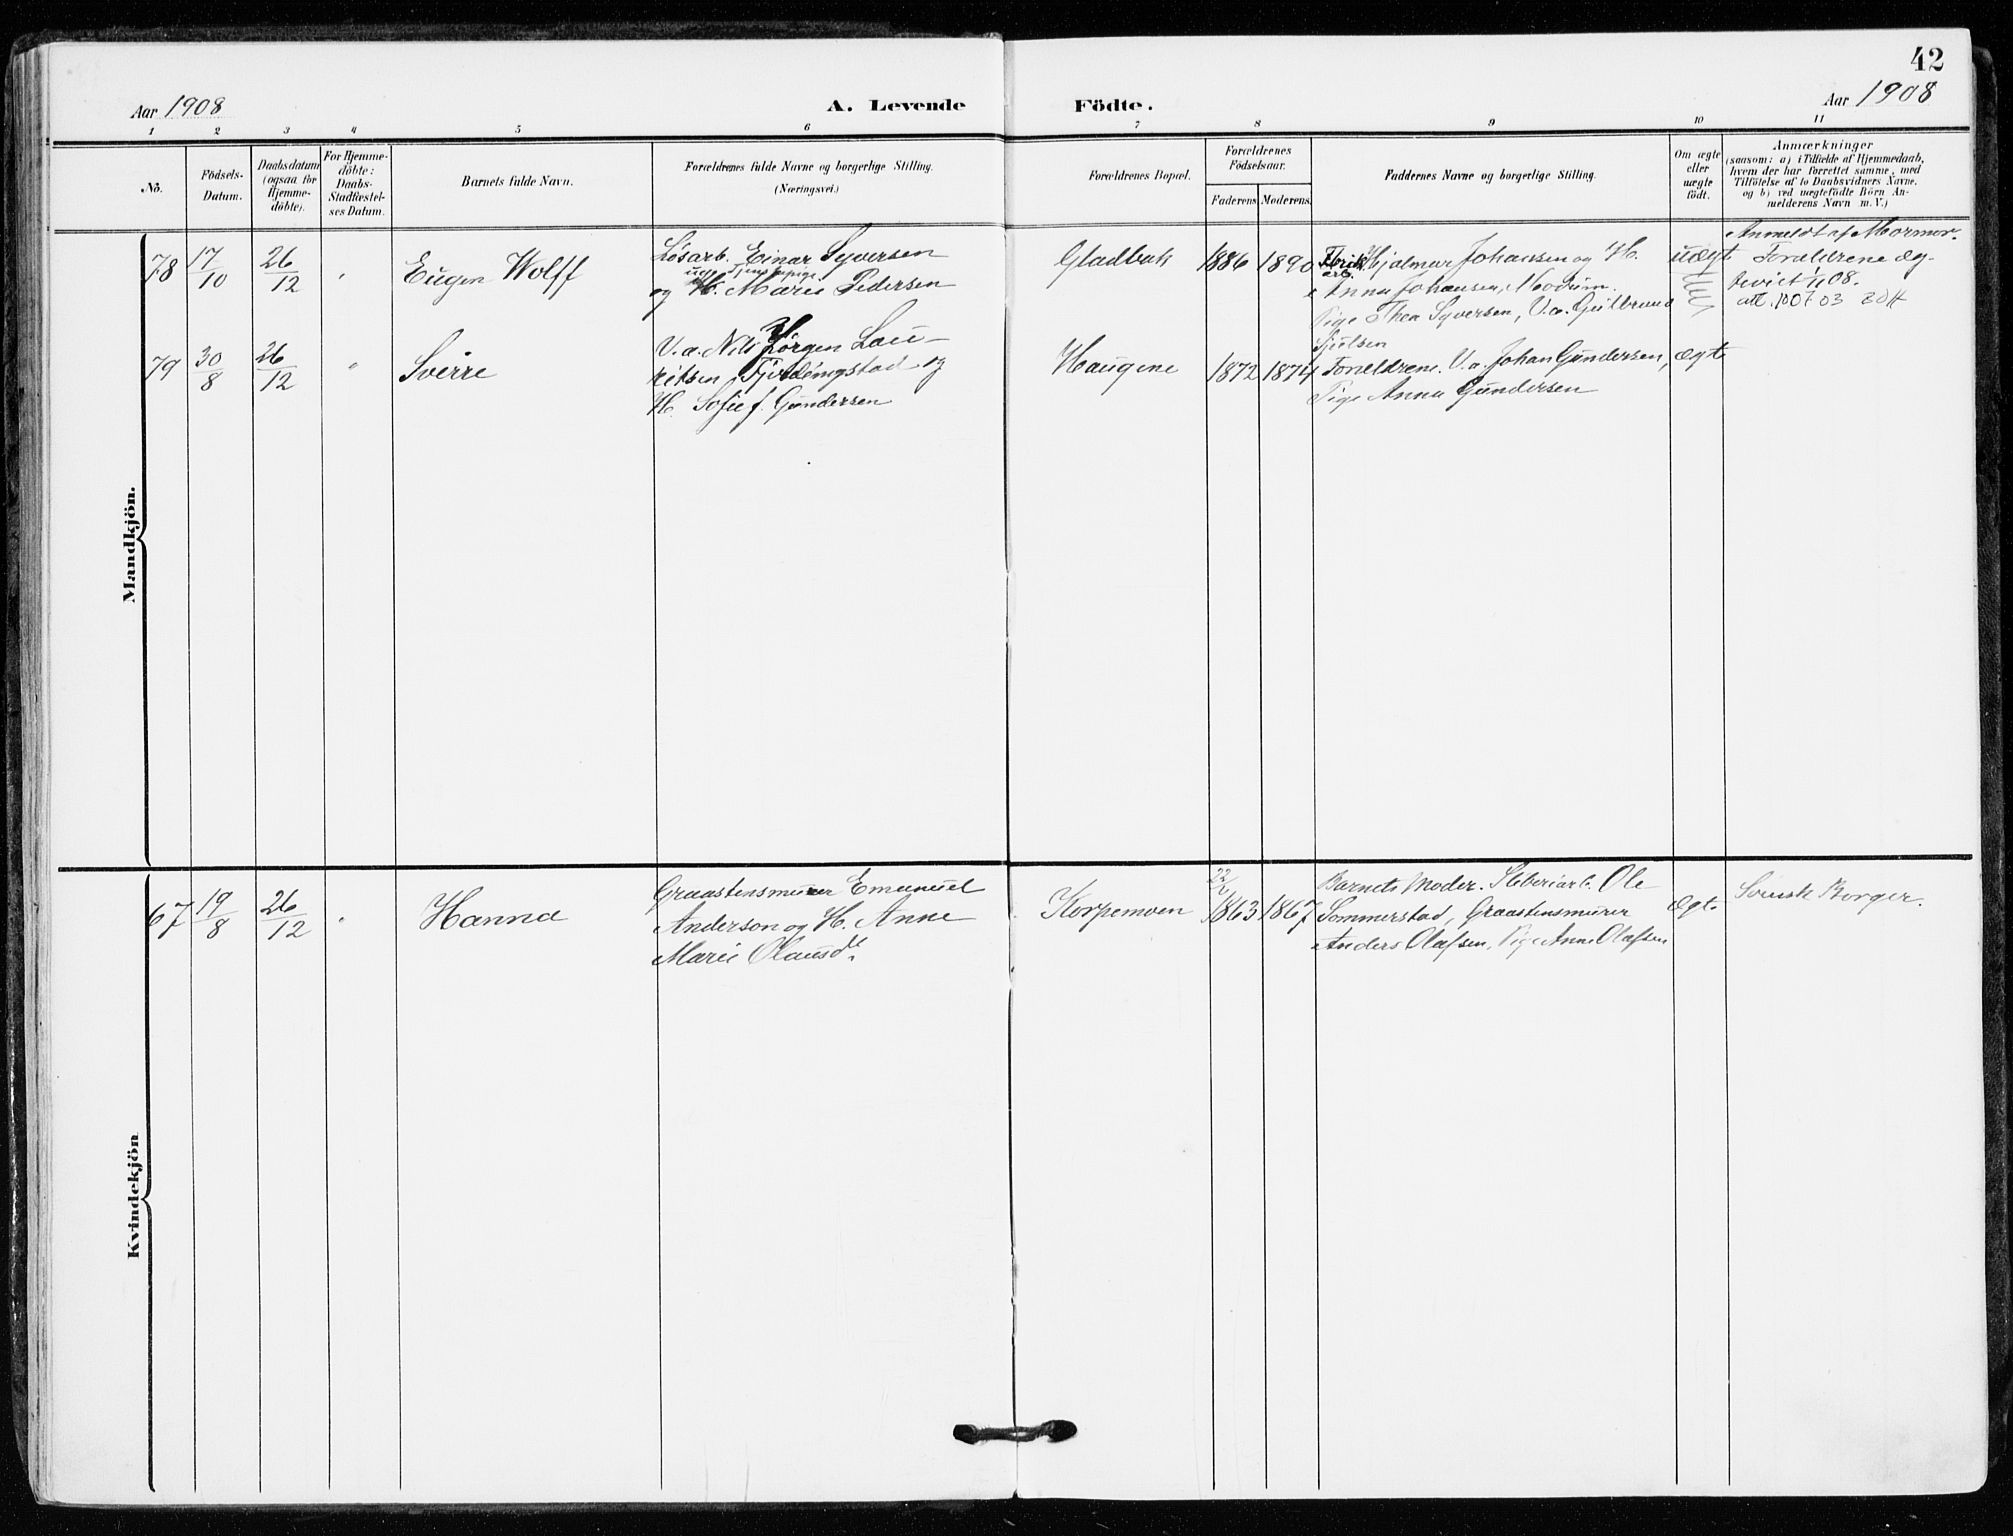 42
Aar 1908
A. Levende Födte.
Aar 1908
1 2 3 4 5 6 7 8 9 10 11
No.
Födsels-
Datum.
Daabsdatum
(ogsaa for
Hjemme-
döbte).
For Hjemme-
döbte:
Daabs-
Stadfæstel-
ses Datum.
Barnets fulde Navn.
Forældrenes fulde Navne og borgerlige Stilling.
(Næringsvei.)
Forældrenes Bopæl.
Forældrenes
Födselsaar.
Faderens
Moderens
Faddernes Navne og borgerlige Stilling.
Om ægte
eller
uægte
födt.
Anmærkninger
(saasom: a) i Tilfælde af Hjemmedaab,
hvem der har forrettet samme, med
Tilföielse af to Daabsvidners Navne,
og b) ved uægtefödte Börn An-
melderens Navn m. V.)
Mandkjön.
78
17/10
26/12
"
Eugen Wolff
Løsarb. Einar Syversen
ug. Tjenestepige
og H. Marie Pedersen
Gladbak
1886
1890
Fabrik Hjalmar Johansen og H.
arb.
Anna Johansen, Modum.
Pige Thea Syversen, U.a. Gulbrand
Sjulsen
uægt
Anmeldt af Mormor.
Forældrene æg-
teviet 1/11 08.
att. 1007 03
79
30/8
26/12
"
Sverre
U.a. Nils Jörgen Lau-
ritsen Fjerdingstad og
H. Sofie f. Gundersen
Haugene
1872
1874
Forældrene. U.a. Johan Gundersen,
Pige Anna Gundersen
ægt
Kvindekjön
67
19/8
26/12
"
Hanna
Graastensmurer Emanuel
Anderson og H. Anne
Marie Olausdt.
Korpemoen
22/6
1863
1867
Barnets Moder. Sliberiarb. Ole
Sommerstad, Graastensmurer
Anders Olafsen, Pige Anne Olafsen
ægt.
Svensk Borger.